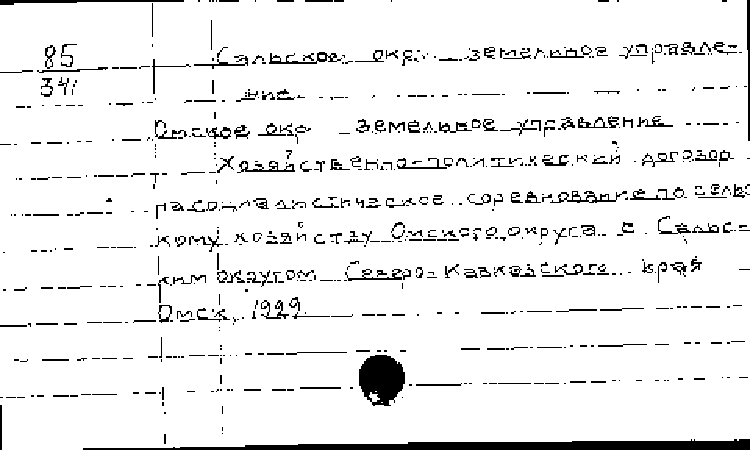 85
341
Сальское окр. земельное управле-
ние.
Омское окр земельное управление
Хозяйственно-политический договор
на социалистическое соревнование по сельс
кому хозяйству Омского округа с Сальс-
ким округом Северо-Кавказского края
Омск, 1929